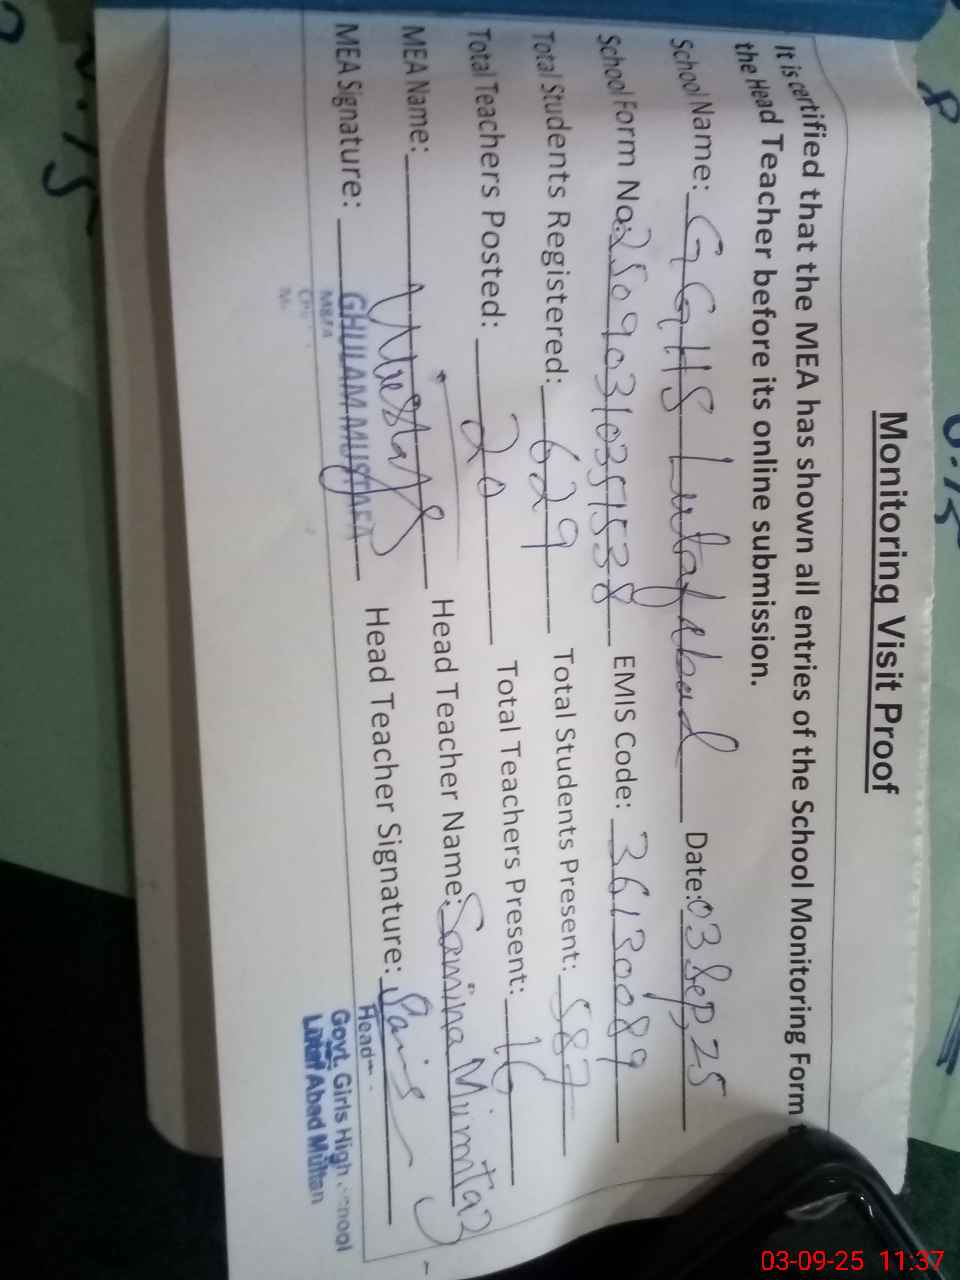 Monitoring Visit Proof
It is certified that the MEA has shown all entries of the School Monitoring Form t
the Head Teacher before its online submission.
School Name: GGHS Lutafabad Date: 03 Sep, 25
School Form No: 25090310351538 EMIS Code: 36130089
Total Students Registered: 629 Total Students Present: 587
Total Teachers Posted: 20 Total Teachers Present: 16
MEA Name: Head Teacher Name: Samina Mumtaz
MEA Signature: Mustafa Head Teacher Signature:
GHULAM MUSTAFA
M&EA
Head
Govt. Girls High School
Lutaf Abad Multan
03-09-25 11:37